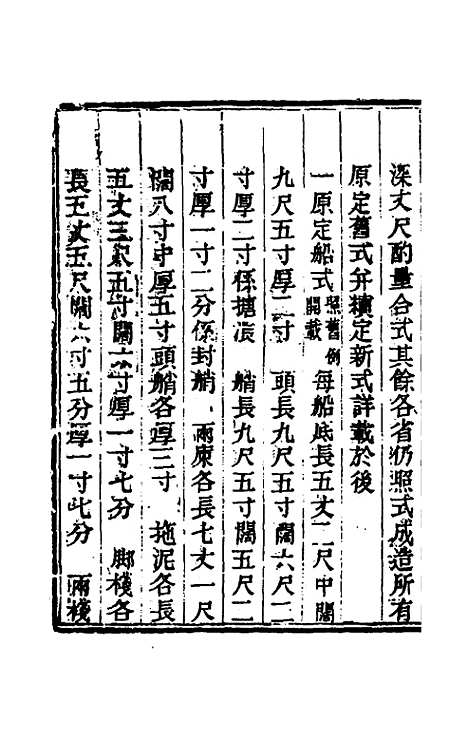 深丈尺酌量合式其餘各省仍照式成造所有
原定舊式并續定新式詳載於後
一原定船式照舊例開載每船底長五丈二尺中闊
九尺五寸厚二寸　頭長九尺五寸闊六尺二
寸厚二寸係搪浪　艄長九尺五寸闊五尺二
寸厚一寸二分係封艄　兩廒各長七丈一尺
闊八寸中厚五寸頭艄各厚三寸　拖泥各長
五丈三尺五寸闊六寸厚一寸七分　脚棧各
長五丈五尺闊六寸五分厚一寸七分　兩棧